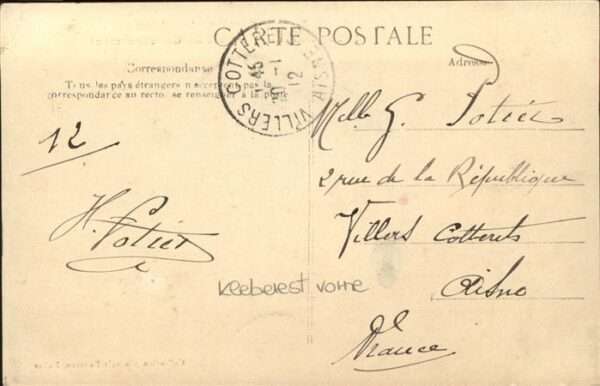 CARTE POSTALE
Correspondance
Adresse
Tous les pays étrangers n'acceptent pas la
correspondance au recto, se renseigner à la poste
VILLERS COTTERETS AISNE
12
Melle G. Potier
2 rue de la République
Villers Cotterets
Aisne
France
12
H. Potier